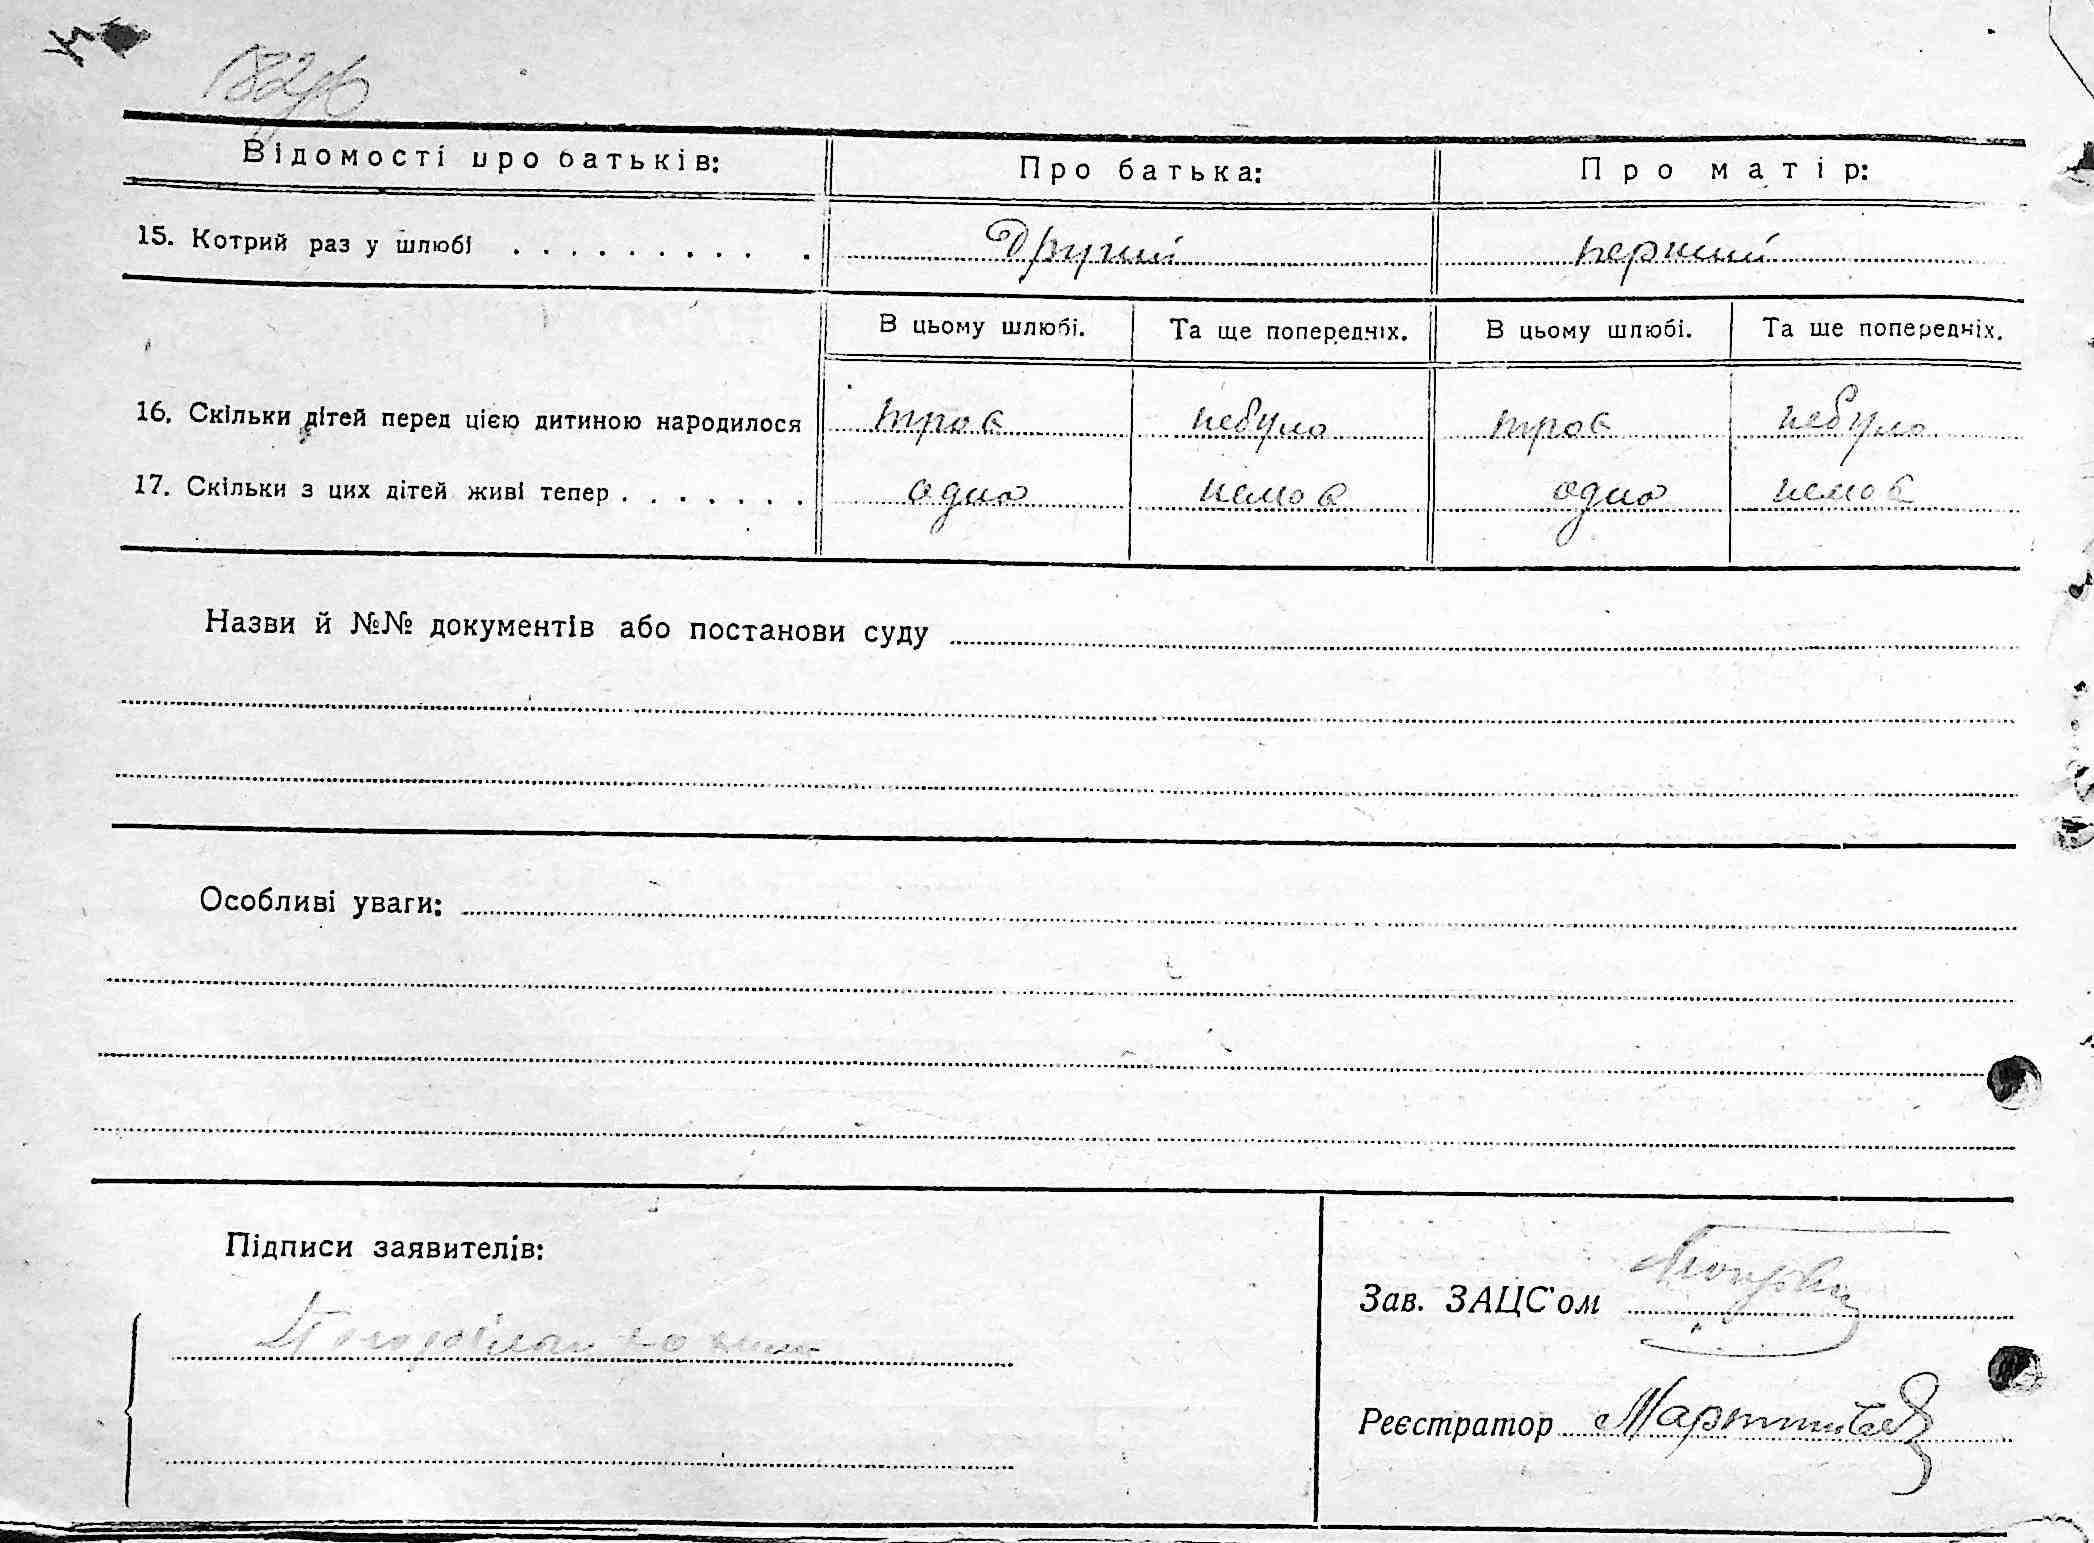 Відомості про батьків: Про батька: Про матір:
15. Котрий раз у шлюбі . . . . . . . . . . Другий перший
В цьому шлюбі. Та ще попередніх. В цьому шлюбі. Та ще попередніх.
16. Скільки дітей перед цією дитиною народилося троє небуло троє небуло
17. Скільки з цих дітей живі тепер . . . . . . . одно немає одно немає
Назви й №№ документів або постанови суду
Особливі уваги:
Підписи заявителів:
Зав. ЗАЦС'ом
Реєстратор